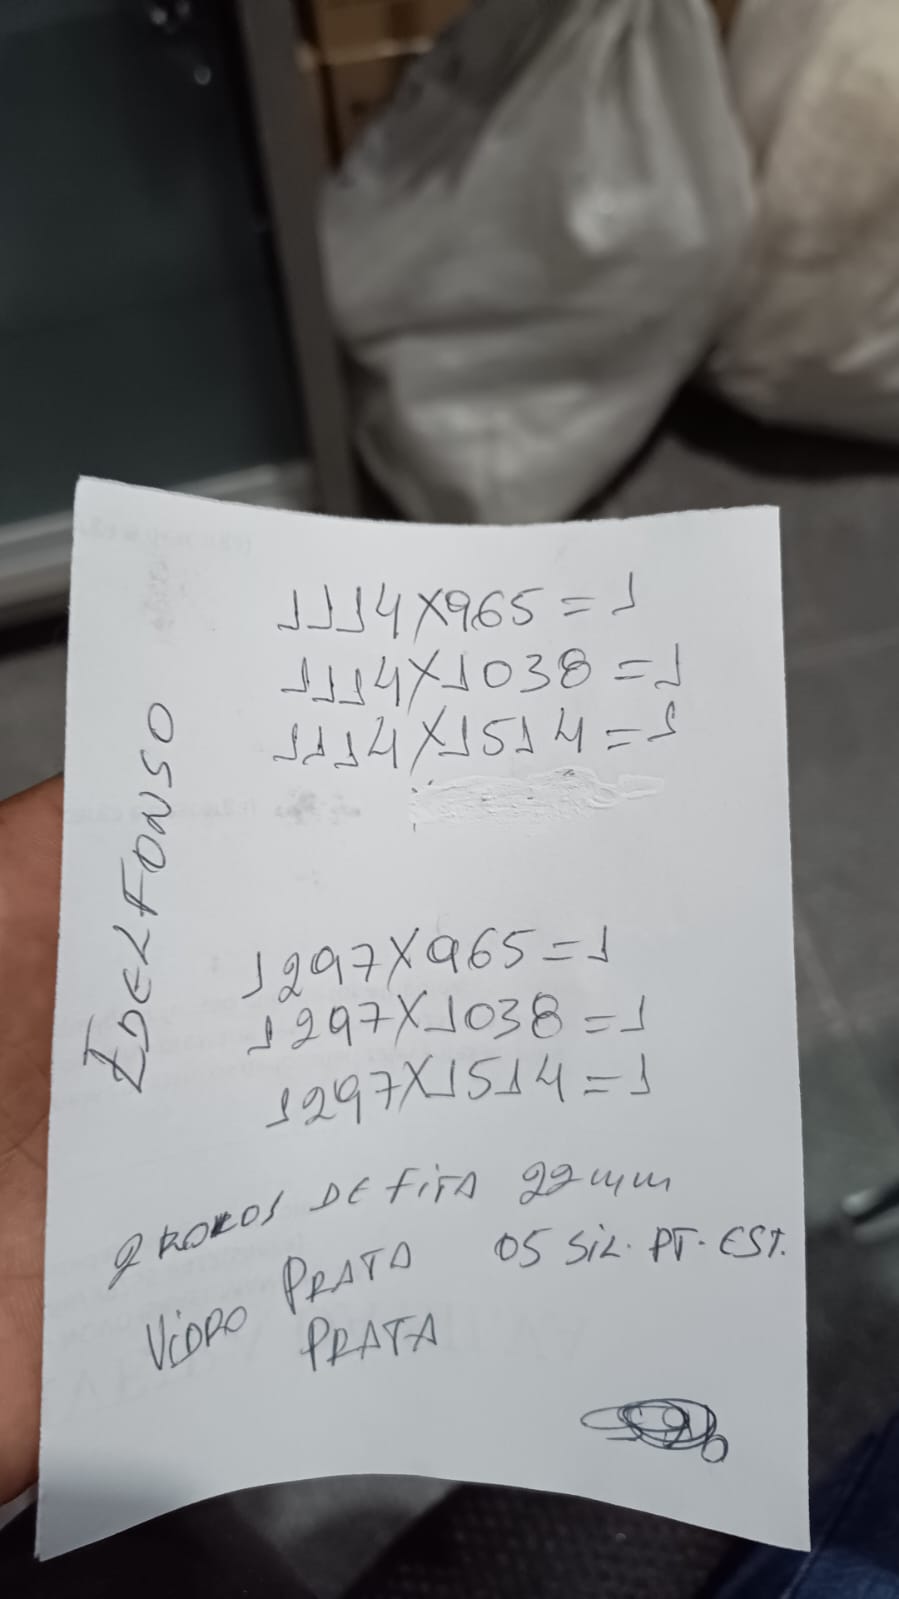 1114X965=1
1114X1038=1
1114X1514=1
IDELFONSO
1297X965=1
1297X1038=1
1297X1514=1
2 ROLOS DE FiTA 22mm
PRATA 05 SiL. PT. EST.
ViDRO PRATA